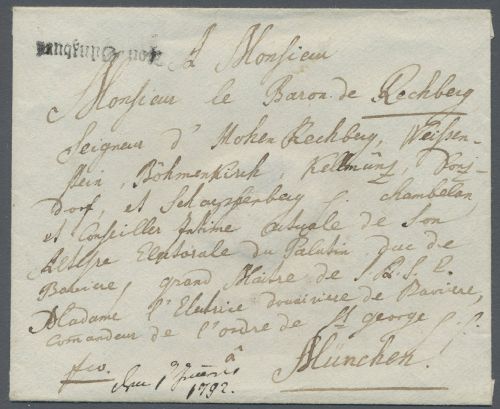 Von Günzburg
A Monsieur
Monsieur le Baron de Rechberg
Seigneur d'Hohen Rechberg, Weissen-
stein, Böhmenkirch, Kellmünz, Donz-
dorf, et Scharpfenberg p. Chambelan,
et Conseiller Intime actuale de Son
Altesse Electorale du Palatin duc de
Baviere, grand Maitre de S. A. S. E.
Madame l'Electrice douairiere de Baviere,
comandeur de l'ordre de St george p. p.
à
fco.
München
den 1
1792.